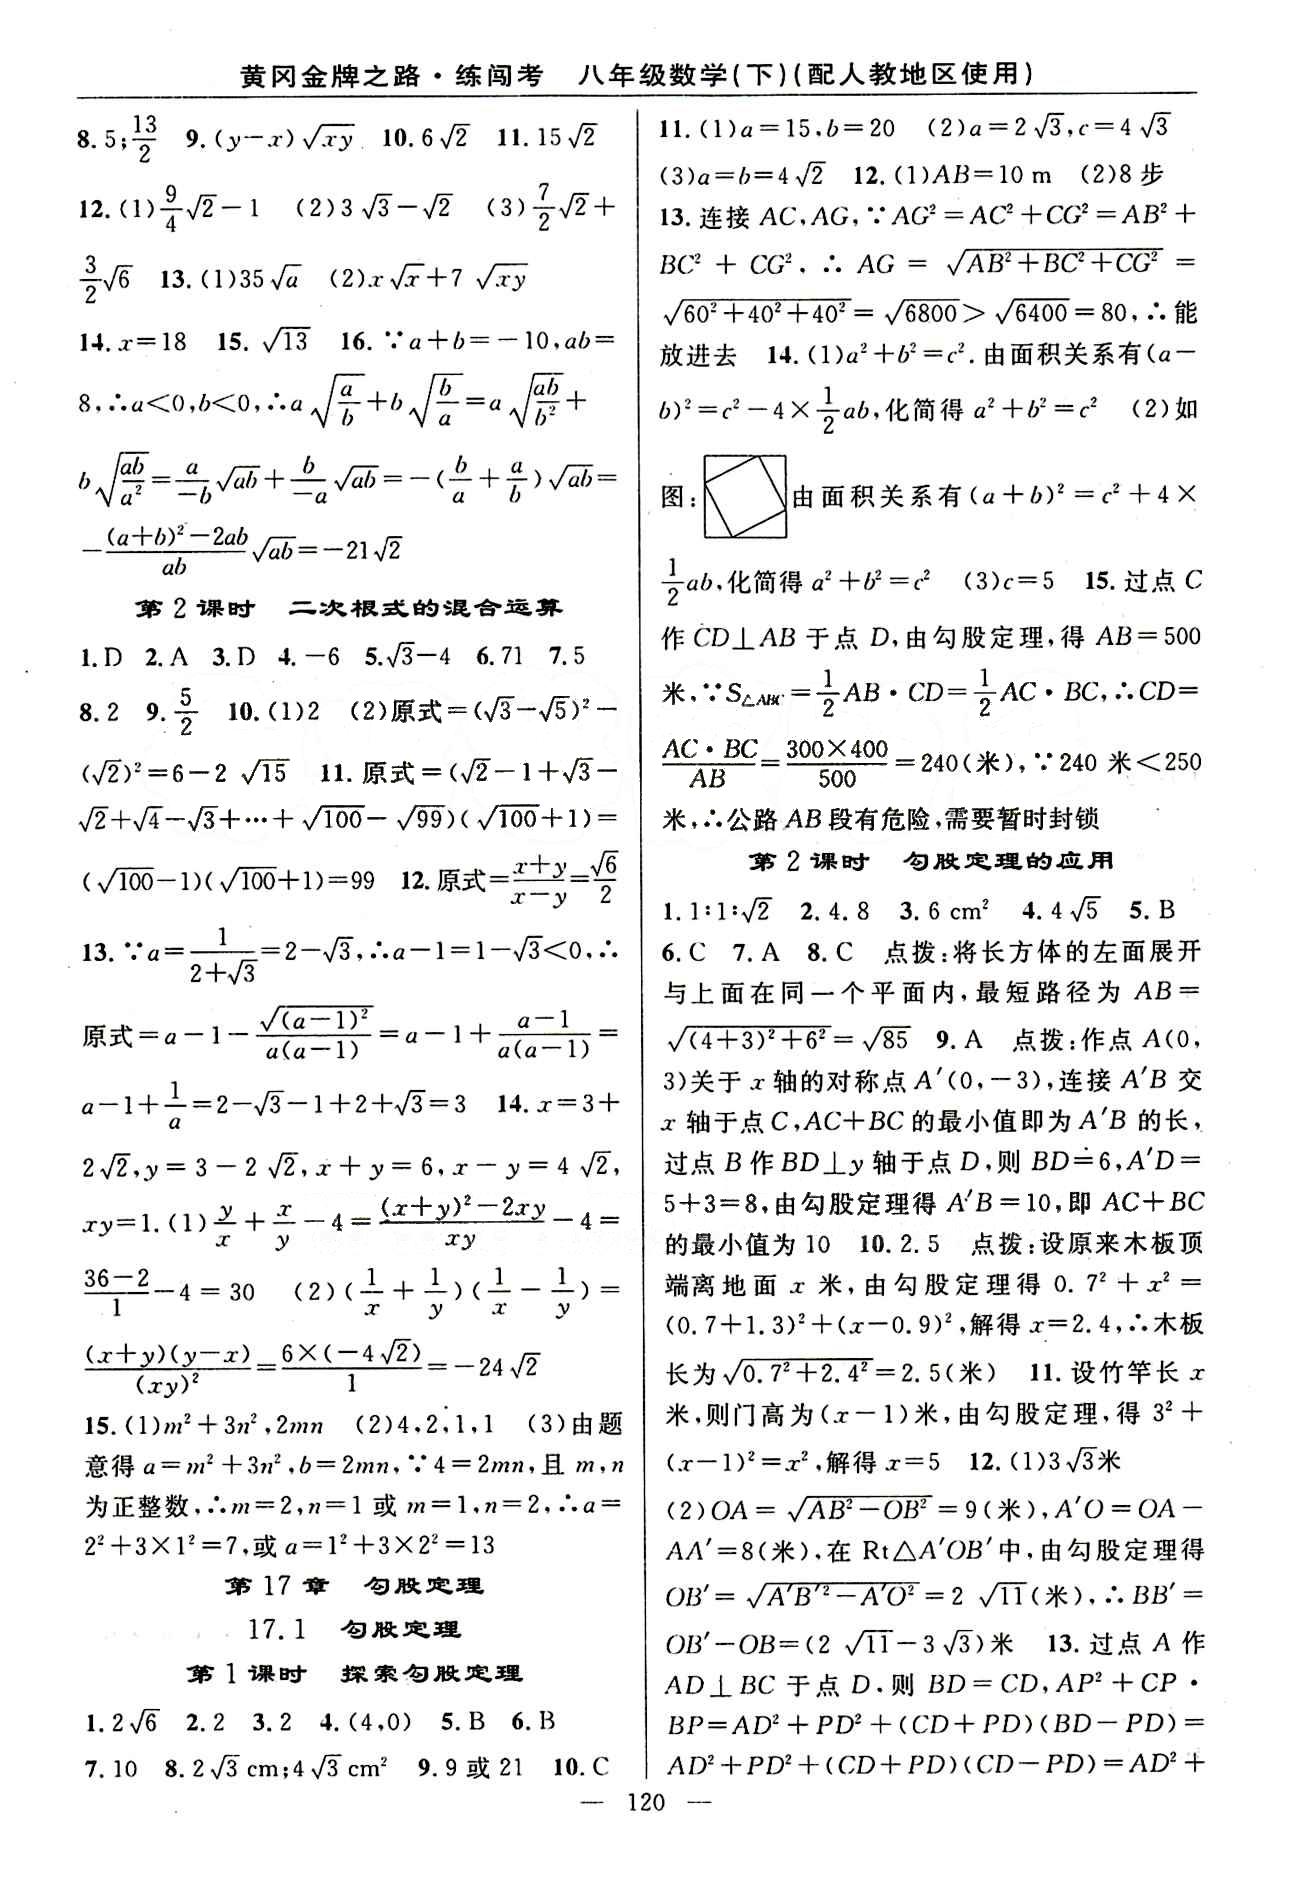 黄冈金牌之路·练闯考 八年级数学(下)(配人教地区使用)
8. 5; 13/2 9. (y-x)√xy 10. 6√2 11. 15√2
12. (1) 9/4 √2-1 (2)3√3-√2 (3) 7/2 √2+
3/2 √6 13. (1)35√a (2)x√x+7√xy
14. x=18 15. √13 16. ∵a+b=-10,ab=
8,∴a<0,b<0,∴a√(a/b)+b√(b/a)=a√(ab/b²)+
b√(ab/a²)=a/(-b) √ab+b/(-a) √ab=-(b/a+a/b)√ab=
-((a+b)²-2ab)/ab √ab=-21√2
第2课时 二次根式的混合运算
1. D 2. A 3. D 4. -6 5. √3-4 6. 71 7. 5
8. 2 9. 5/2 10. (1)2 (2)原式=(√3-√5)²-
(√2)²=6-2√15 11. 原式=(√2-1+√3-
√2+√4-√3+…+√100-√99)(√100+1)=
(√100-1)(√100+1)=99 12. 原式=(x+y)/(x-y)=√6/2
13. ∵a=1/(2+√3)=2-√3,∴a-1=1-√3<0,∴
原式=a-1-√(a-1)²/(a(a-1))=a-1+(a-1)/(a(a-1))=
a-1+1/a=2-√3-1+2+√3=3 14. x=3+
2√2,y=3-2√2,x+y=6,x-y=4√2,
xy=1. (1) y/x+x/y-4=((x+y)²-2xy)/xy-4=
(36-2)/1-4=30 (2)(1/x+1/y)(1/x-1/y)=
(x+y)(y-x)/(xy)²=6×(-4√2)/1=-24√2
15. (1)m²+3n²,2mn (2)4,2,1,1 (3)由题
意得a=m²+3n²,b=2mn,∵4=2mn,且m,n
为正整数,∴m=2,n=1或m=1,n=2,∴a=
2²+3×1²=7,或a=1²+3×2²=13
第17章 勾股定理
17.1 勾股定理
第1课时 探索勾股定理
1. 2√6 2. 2 3. 2 4. (4,0) 5. B 6. B
7. 10 8. 2√3 cm;4√3 cm² 9. 9或21 10. C
11. (1)a=15,b=20 (2)a=2√3,c=4√3
(3)a=b=4√2 12. (1)AB=10 m (2)8步
13. 连接AC,AG,∵AG²=AC²+CG²=AB²+
BC²+CG²,∴AG=√(AB²+BC²+CG²)=
√(60²+40²+40²)=√6800>√6400=80,∴能
放进去 14. (1)a²+b²=c². 由面积关系有(a-
b)²=c²-4×1/2 ab,化简得a²+b²=c² (2)如
图: 由面积关系有(a+b)²=c²+4×
1/2 ab,化简得a²+b²=c² (3)c=5 15. 过点C
作CD⊥AB于点D,由勾股定理,得AB=500
米,∵S△ABC=1/2 AB·CD=1/2 AC·BC,∴CD=
AC·BC/AB=300×400/500=240(米),∵240米<250
米,∴公路AB段有危险,需要暂时封锁
第2课时 勾股定理的应用
1. 1∶1∶√2 2. 4.8 3. 6 cm² 4. 4√5 5. B
6. C 7. A 8. C 点拨:将长方体的左面展开
与上面在同一个平面内,最短路径为AB=
√((4+3)²+6²)=√85 9. A 点拨:作点A(0,
3)关于x轴的对称点A′(0,-3),连接A′B交
x轴于点C,AC+BC的最小值即为A′B的长,
过点B作BD⊥y轴于点D,则BD=6,A′D=
5+3=8,由勾股定理得A′B=10,即AC+BC
的最小值为10 10. 2.5 点拨:设原来木板顶
端离地面x米,由勾股定理得0.7²+x²=
(0.7+1.3)²+(x-0.9)²,解得x=2.4,∴木板
长为√(0.7²+2.4²)=2.5(米) 11. 设竹竿长x
米,则门高为(x-1)米,由勾股定理,得3²+
(x-1)²=x²,解得x=5 12. (1)3√3米
(2)OA=√(AB²-OB²)=9(米),A′O=OA-
AA′=8(米),在Rt△A′OB′中,由勾股定理得
OB′=√(A′B′²-A′O²)=2√11(米),∴BB′=
OB′-OB=(2√11-3√3)米 13. 过点A作
AD⊥BC于点D,则BD=CD,AP²+CP·
BP=AD²+PD²+(CD+PD)(BD-PD)=
AD²+PD²+(CD+PD)(CD-PD)=AD²+
— 120 —